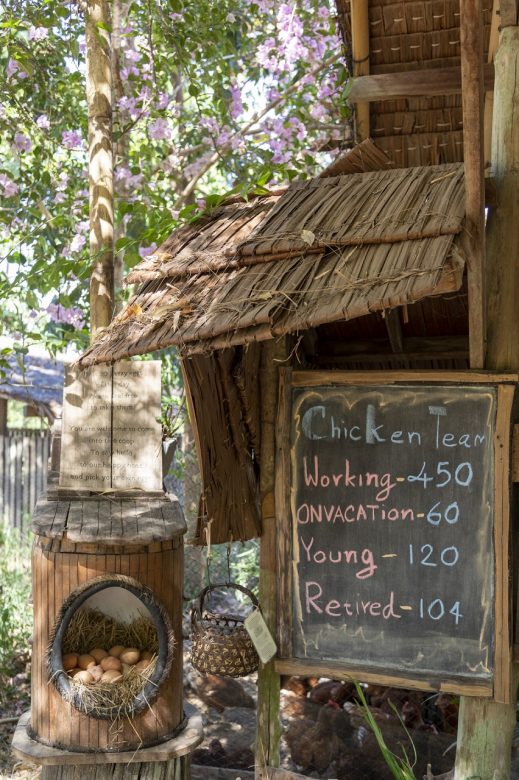 You are welcome to come
into the coop
To say hello
to our happy hens
and pick your own eggs
Chicken Team
Working-450
ONVACATION-60
Young-120
Retired-104